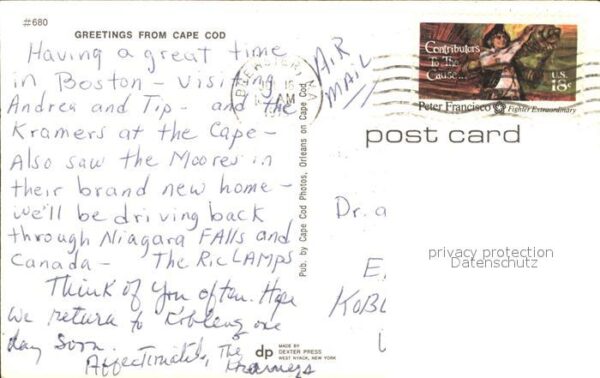 #680
GREETINGS FROM CAPE COD
Having a great time
in Boston - visiting
Andrea and Tip - and the
Kramers at the Cape -
Also saw the Moores in
their brand new home -
we'll be driving back
through Niagara FAlls and
Canada - The RicLAMPS
Think of you often. Hope
we return to Koblenz one
day soon.
Affectionately, The
Kramers
Pub. by Cape Cod Photos, Orleans on Cape Cod
dp
MADE BY
DEXTER PRESS
WEST NYACK, NEW YORK
AM
AIR
MAIL
Contributors
To The
Cause...
U.S.
18c
Peter Francisco Fighter Extraordinary
post card
Dr. a
privacy protection
Datenschutz
E
KOBL